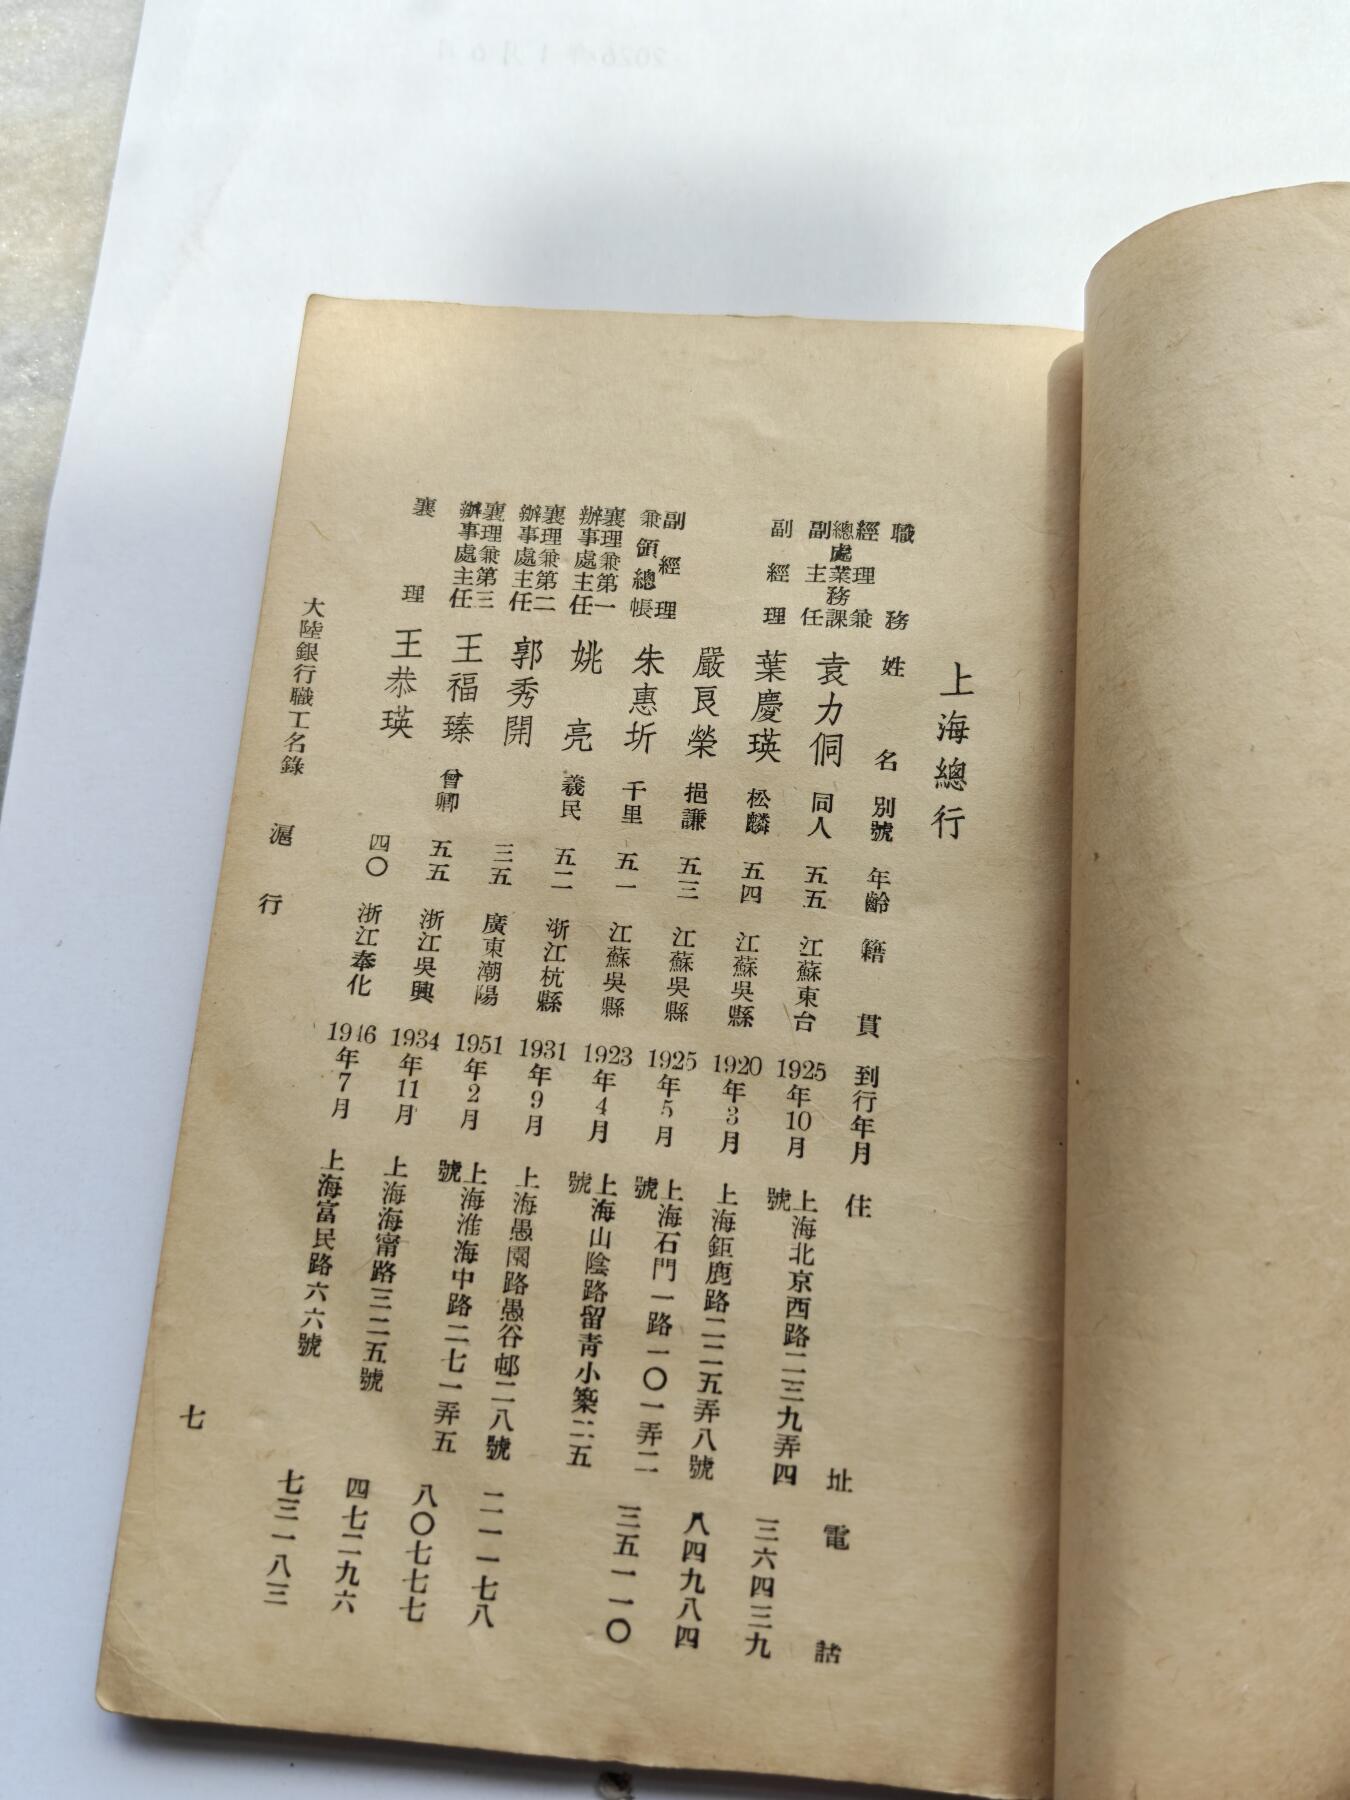 上海總行
職務 姓名 別號 年齡 籍貫 到行年月 住址 電話
經理兼總處業務課副主任 袁力侗 同人 五五 江蘇東台 1925年10月 上海北京西路二三九弄四號 三六四三九
副經理 葉慶瑛 松麟 五四 江蘇吳縣 1920年3月 上海鉅鹿路二二五弄八號 八四九八四
嚴艮榮 挹謙 五三 江蘇吳縣 1925年5月 上海石門一路一〇一弄二號 三五一一〇
副經理兼領總帳 朱惠圻 千里 五一 江蘇吳縣 1923年4月 上海山陰路留青小築二五號
襄理兼第一辦事處主任 姚亮 羲民 五二 浙江杭縣 1931年9月 上海愚園路愚谷邨二八號 二一一七八
襄理兼第二辦事處主任 郭秀開 三五 廣東潮陽 1951年2月 上海淮海中路二七一弄五號 八〇七七七
襄理兼第三辦事處主任 王福臻 曾卿 五五 浙江吳興 1934年11月 上海海甯路三二五號 四七二九六
襄理 王恭瑛 四〇 浙江奉化 1946年7月 上海富民路六六號 七三一八三
大陸銀行職工名錄 滬行
七